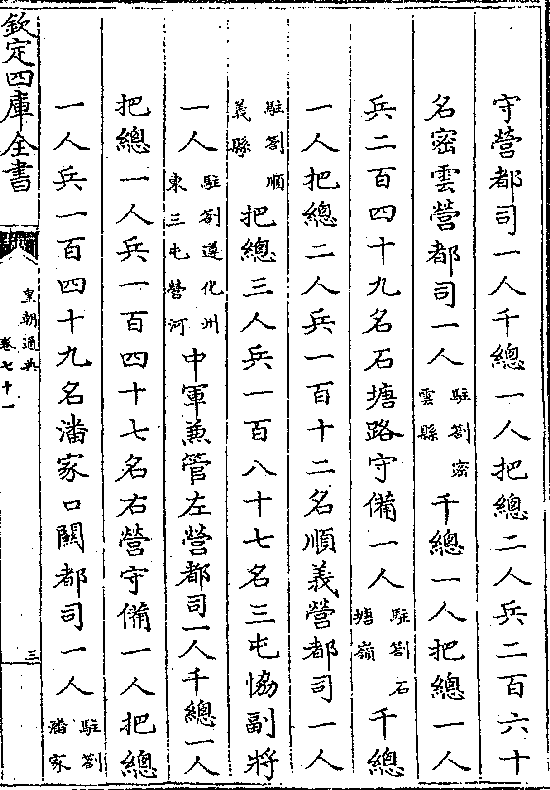 守營都司一人千總一人把總二人兵二百六十
名密雲營都司一人駐劄密雲縣千總一人把總一人
兵二百四十九名石塘路守備一人駐劄石塘嶺千總
一人把總二人兵一百十二名順義營都司一人
駐劄順義縣把總三人兵一百八十七名三屯協副將
一人駐劄遵化州東三屯營河中軍兼管左營都司一人千總一人
把總一人兵一百四十七名右營守備一人把總
一人兵一百四十九名潘家口關都司一人駐劄潘家
欽定四庫全書
皇朝通典
卷七十一
三